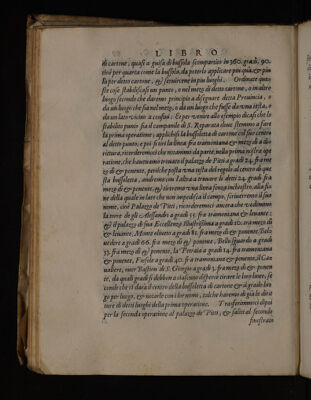 LIBRO
di cartone, quasi a guisa di bussola scompartito in 360. gradi, 90.
cioè per quarta come la bussola, da poterlo applicare piu quà, & piu
là per detto cartone, & servircene in piu luoghi. Ordinate que
ste cose stabiliscasi un punto, o nel mezo di detto cartone, o in altro
luogo secondo che daremo principio a disegnare detta Provincia, o
da un luogo che sia nel mezo, o da un luogo che fusse da una testa, o
da un lato vicino a confini: Et per venire allo esempio dicasi che lo
stabilito punto sia il campanile di S. Reparata dove stemmo a fare
la prima operatione; applichisi la bussoletta di cartone col suo centro
al detto punto; e poi si tiri la linea fra tramontana & mezo dì a di
rittura, ricorderemoci che vicinomini da parte, nella prima nostra ope
ratione, che havevamo trovato il palazzo de Pitti a gradi 24. fra me
zo dì & ponente, perilche posta una testa del regolo al centro di que
sta bussoletta, andremo con l'altra a trovare li detti 24. gradi fra
mezo dì & ponente, & tireremo una linea senza inchiostro, alla fi
ne della quale in lato che non impedisca il campo, scriveremo il suo
nome, cioè Palazzo de' Pitti; ricorderemoci ancora che vedemmo
la torre de gli Alessandri a gradi 55. fra tramontana & levante:
& il palazzo di sua Eccellenza Illustrissima a gradi 20. tra mezo dì
& levante, Monte uliveto a gradi 81. fra mezo dì & ponente, Bel
vedere a gradi 66. fra mezo dì & ponente, Bello sguardo a gradi
53. fra mezo dì & ponente, la Petraia a gradi 14. fra tramontana
& ponente, Fiesole a gradi 40. fra tramontana & ponente, il Ca
valiere, over Bastion de S. Giorgio a gradi 5. fra mezo dì & ponen
te, da quali gradi si debbon a ciascuno di per se tirare le lor linee, se
condo che ti darà il centro della bussoletta di cartone & il grado luo
go per luogo, & notarle con i lor nomi, talche haremo di già le dirit
ture di detti luoghi della prima operatione. Trasferimmoci dipoi
per la seconda operatione al palazzo de' Pitti, & saliti al secondo
finestrato